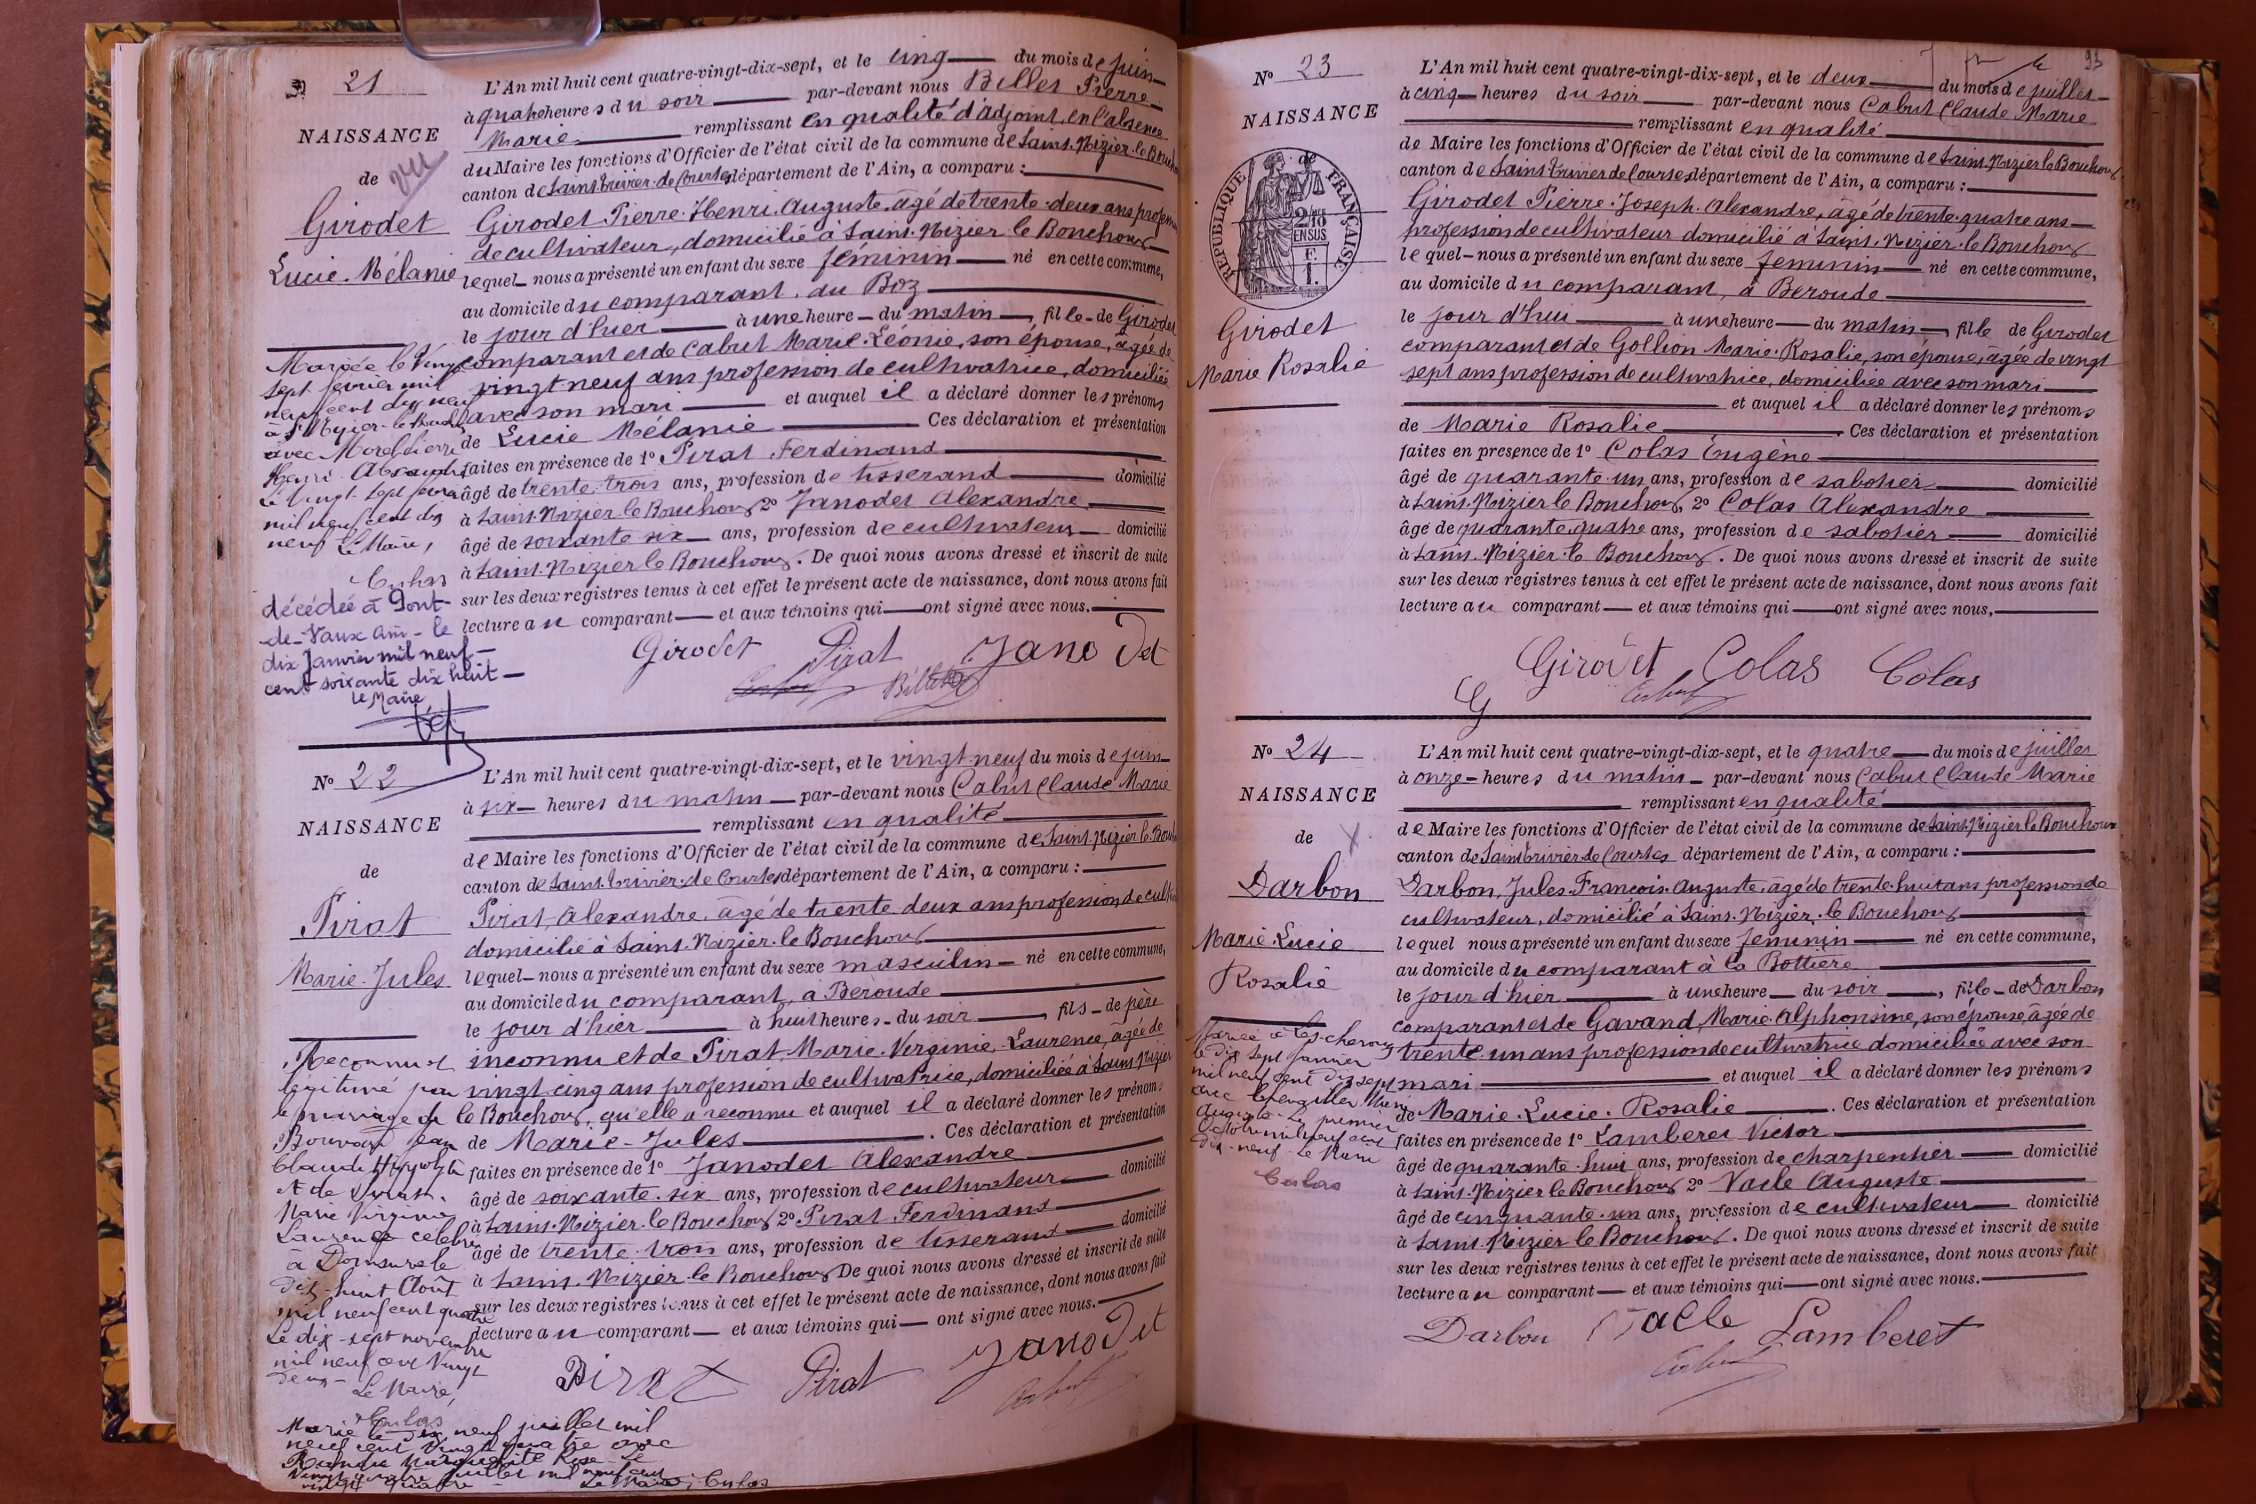 N° 21
NAISSANCE
de
vu
Girodet
Lucie Mélanie
L'An mil huit cent quatre-vingt-dix-sept, et le cinq du mois de juin
à quatre heures du soir par-devant nous Billet Pierre
Marie remplissant en qualité d'adjoint en l'absence
du Maire les fonctions d'Officier de l'état civil de la commune de Saint-Nizier-le-Bouchoux
canton de Saint-trivier-de-Courtes département de l'Ain, a comparu :
Girodet Pierre Henri Auguste, âgé de trente-deux ans profession
de cultivateur, domicilié à Saint-Nizier le Bouchoux
lequel nous a présenté un enfant du sexe féminin né en cette commune,
au domicile du comparant, au Boz
le jour d'hier à une heure du matin, fille de Girodet
comparant et de Cabut Marie Léonie, son épouse, âgée de
vingt neuf ans profession de cultivatrice, domiciliée
avec son mari et auquel il a déclaré donner les prénoms
de Lucie Mélanie Ces déclaration et présentation
faites en présence de 1° Pirat Ferdinand
âgé de trente-trois ans, profession de tisserand domicilié
à Saint-Nizier le Bouchoux 2° Janodet Alexandre
âgé de soixante six ans, profession de cultivateur domicilié
à Saint-Nizier le Bouchoux. De quoi nous avons dressé et inscrit de suite
sur les deux registres tenus à cet effet le présent acte de naissance, dont nous avons fait
lecture au comparant et aux témoins qui ont signé avec nous.
Girodet Pirat Janodet
Billet
Mariée le Vingt
sept février mil
neuf cent dix neuf
à St Nizier-le-Bouchoux
avec Morel Pierre
Henri
Le Vingt sept février
mil neuf cent dix
neuf Le Maire,
décédée à Pont-
de-Vaux Ain - le
dix Janvier mil neuf-
cent soixante dix huit-
Le Maire
N° 22
NAISSANCE
de
Pirat
Marie Jules
L'An mil huit cent quatre-vingt-dix-sept, et le vingt neuf du mois de juin
à six heures du matin par-devant nous Cabut Claude Marie
remplissant en qualité
de Maire les fonctions d'Officier de l'état civil de la commune de Saint-Nizier le Bouchoux
canton de Saint-trivier-de-Courtes département de l'Ain, a comparu :
Pirat, Alexandre, âgé de trente deux ans profession de
domicilié à Saint-Nizier-le-Bouchoux
lequel nous a présenté un enfant du sexe masculin né en cette commune,
au domicile du comparant, à Beroude
le jour d'hier à huit heures du soir, fils de père
inconnu et de Pirat, Marie Verginie Laurence, âgée de
vingt-cinq ans profession de cultivatrice, domiciliée à Saint Nizier
le Bouchoux, qu'elle a reconnu et auquel il a déclaré donner les prénoms
de Marie-Jules. Ces déclaration et présentation
faites en présence de 1° Janodet Alexandre
âgé de soixante-six ans, profession de cultivateur domicilié
à Saint-Nizier-le-Bouchoux 2° Pirat Ferdinand
âgé de trente-trois ans, profession de tisserand domicilié
à Saint-Nizier-le-Bouchoux De quoi nous avons dressé et inscrit de suite
sur les deux registres tenus à cet effet le présent acte de naissance, dont nous avons fait
lecture au comparant et aux témoins qui ont signé avec nous.
Pirat Pirat Janodet
Reconnu et
légitimé par
le mariage de
Bouvard Jean
Claude Hippolyte
et de Pirat
Marie Virginie
Laurence célébré
à Domsure le
dix-huit Août
mil neuf cent quatre
Le dix-sept novembre
mil neuf cent Vingt
deux - Le Maire,
Marié le dix neuf juillet mil
neuf cent Vingt quatre avec
Marguerite Rose Le
Vingt quatre juillet mil neuf cent
vingt quatre Le Maire
93
N° 23
NAISSANCE
de
REPUBLIQUE FRANÇAISE
2/10 EN SUS
Girodet
Marie Rosalie
L'An mil huit cent quatre-vingt-dix-sept, et le deux du mois de juillet
à cinq heures du soir par-devant nous Cabut Claude Marie
remplissant en qualité
de Maire les fonctions d'Officier de l'état civil de la commune de Saint-Nizier le Bouchoux
canton de Saint-trivier de Courtes département de l'Ain, a comparu :
Girodet Pierre-Joseph-Alexandre, âgé de trente-quatre ans
profession de cultivateur domicilié à Saint-Nizier-le-Bouchoux
lequel nous a présenté un enfant du sexe feminin né en cette commune,
au domicile du comparant, à Beroude
le jour d'hui à une heure du matin, fille de Girodet
comparant et de Gollion Marie-Rosalie, son épouse, âgée de vingt
sept ans profession de cultivatrice, domiciliée avec son mari
et auquel il a déclaré donner les prénoms
de Marie Rosalie. Ces déclaration et présentation
faites en présence de 1° Colas Eugène
âgé de quarante-un ans, profession de sabotier domicilié
à Saint-Nizier le Bouchoux, 2° Colas Alexandre
âgé de quarante-quatre ans, profession de sabotier domicilié
à Saint-Nizier-le Bouchoux. De quoi nous avons dressé et inscrit de suite
sur les deux registres tenus à cet effet le présent acte de naissance, dont nous avons fait
lecture au comparant et aux témoins qui ont signé avec nous,
Girodet Colas Colas
N° 24
NAISSANCE
de
Darbon
Marie-Lucie
Rosalie
L'An mil huit cent quatre-vingt-dix-sept, et le quatre du mois de juillet
à onze heures du matin par-devant nous Cabut Claude Marie
remplissant en qualité
de Maire les fonctions d'Officier de l'état civil de la commune de Saint-Nizier le Bouchoux
canton de Saint-trivier de Courtes département de l'Ain, a comparu :
Darbon, Jules-François-Auguste, âgé de trente-huit ans profession de
cultivateur, domicilié à Saint-Nizier-le Bouchoux
lequel nous a présenté un enfant du sexe feminin né en cette commune,
au domicile du comparant à la Bottière
le jour d'hier à une heure du soir, fille de Darbon
comparant et de Gavand, Marie-Alphonsine, son épouse, âgée de
trente-un ans profession de cultivatrice domiciliée avec son
mari et auquel il a déclaré donner les prénoms
de Marie-Lucie-Rosalie. Ces déclaration et présentation
faites en présence de 1° Lamberet Victor
âgé de quarante-huit ans, profession de charpentier domicilié
à Saint-Nizier le Bouchoux 2° Vacle Auguste
âgé de cinquante-un ans, profession de cultivateur domicilié
à Saint-Nizier le Bouchoux. De quoi nous avons dressé et inscrit de suite
sur les deux registres tenus à cet effet le présent acte de naissance, dont nous avons fait
lecture au comparant et aux témoins qui ont signé avec nous.
Darbon Vacle Lamberet
Mariée à
le dix sept Janvier
mil neuf cent dix sept
avec
Auguste Le premier
octobre mil neuf cent
dix-neuf Le Maire